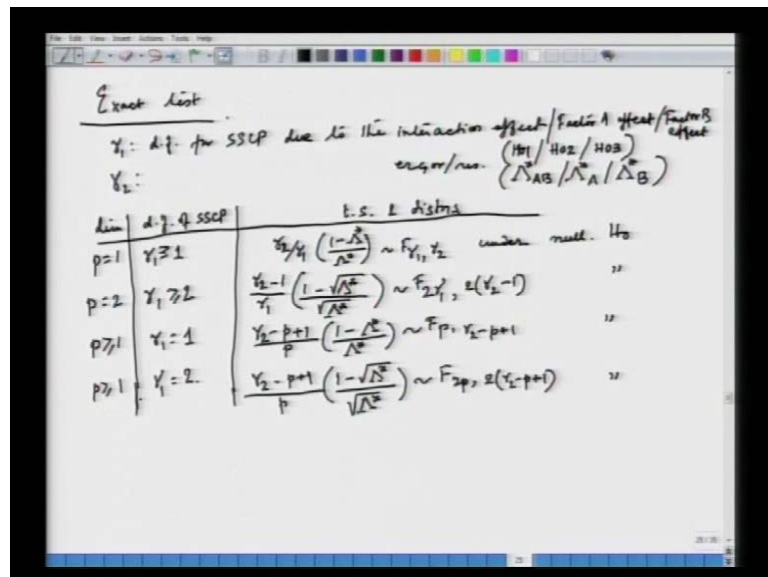 File Edit View Insert Actions Tools Help
Exact dist.
γ₁: d.f. for SSCP due to the interaction effect/Factor A effect/Factor B effect
(H01/H02/H03)
γ₂: error/res. (Λ*AB/Λ*A/Λ*B)
dim d.f. of SSCP t.s. & distns
p=1 γ₁≥1 γ₂/γ₁ (1-Λ*/Λ*) ~ Fγ₁, γ₂ under null. H₀
p=2 γ₁≥2 γ₂-1/γ₁ (1-√Λ*/√Λ*) ~ F2γ₁, 2(γ₂-1) "
p≥1 γ₁=1 γ₂-p+1/p (1-Λ*/Λ*) ~ Fp, γ₂-p+1 "
p≥1 γ₁=2. γ₂-p+1/p (1-√Λ*/√Λ*) ~ F2p, 2(γ₂-p+1) "